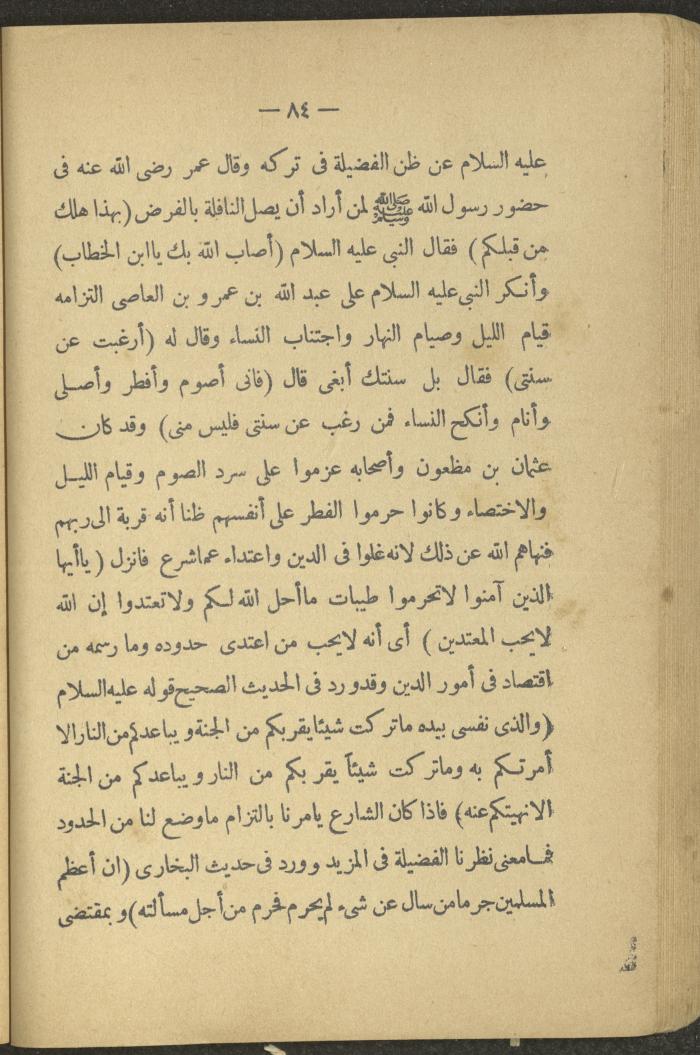 — ٨٤ —
عليه السلام عن ظن الفضيلة فى تركه وقال عمر رضى الله عنه فى
حضور رسول الله ﷺ لمن أراد أن يصل النافلة بالفرض (بهذا هلك
من قبلكم) فقال النبى عليه السلام (أصاب الله بك ياابن الخطاب)
وأنكر النبى عليه السلام على عبد الله بن عمرو بن العاصى التزامه
قيام الليل وصيام النهار واجتناب النساء وقال له (أرغبت عن
سنتى) فقال بل سنتك أبغى قال (فانى أصوم وأفطر وأصلى
وأنام وأنكح النساء فمن رغب عن سنتى فليس منى) وقد كان
عثمان بن مظعون وأصحابه عزموا على سرد الصوم وقيام الليل
والاختصاء وكانوا حرموا الفطر على أنفسهم ظنا أنه قربة الى ربهم
فنهاهم الله عن ذلك لانه غلوا فى الدين واعتداء عما شرع فانزل (ياأيها
الذين آمنوا لاتحرموا طيبات ماأحل الله لكم ولاتعتدوا إن الله
لايحب المعتدين) أى أنه لايحب من اعتدى حدوده وما رسمه من
اقتصاد فى أمور الدين وقدورد فى الحديث الصحيح قوله عليه السلام
(والذى نفسى بيده ماتركت شيئا يقربكم من الجنة ويباعدكم من النار الا
أمرتكم به وماتركت شيئاً يقربكم من النار ويباعدكم من الجنة
الا نهيتكم عنه) فاذا كان الشارع يامرنا بالتزام ماوضع لنا من الحدود
فما معنى نظرنا الفضيلة فى المزيد وورد فى حديث البخارى (ان أعظم
المسلمين جرما من سال عن شىء لم يحرم فحرم من أجل مسألته) وبمقتضى